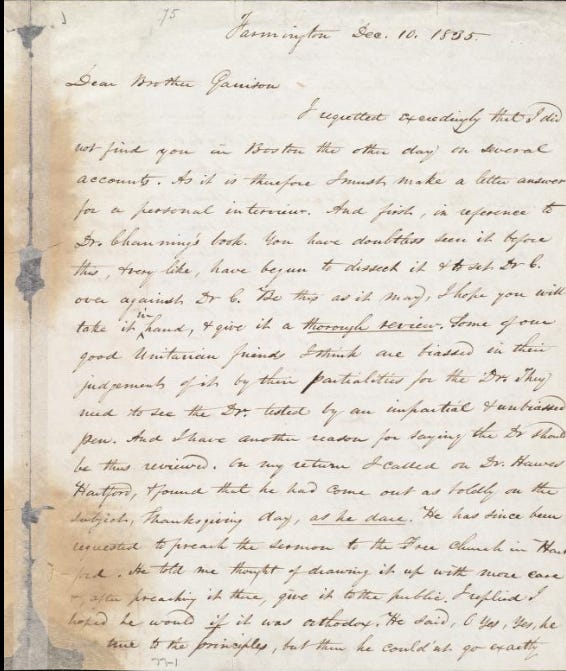 75
Farmington Dec. 10. 1835.
Dear Brother Garrison
I regretted exceedingly that I did
not find you in Boston the other day on several
accounts. As it is therefore I must make a letter answer
for a personal interview. And first, in reference to
Dr. Channing's book. You have doubtless seen it before
this, & very like, have begun to dissect it & to set Dr C.
over against Dr C. Be this as it may, I hope you will
take it in hand, & give it a thorough review. Some of our
good Unitarian friends I think are biassed in their
judgements of it by their partialities for the Dr. They
need to see the Dr. tested by an impartial & unbiassed
pen. And I have another reason for saying the Dr should
be thus reviewed. On my return I called on Dr. Hawes
Hartford, & found that he had come out as boldly on the
subject, thanksgiving day, as he dare. He has since been
requested to preach the sermon to the Free Church in Hart
ford. He told me thought of drawing it up with more care
&, after preaching it there, give it to the public. I replied I
hoped he would if it was orthodox. He said, O Yes, Yes, he
true to the principles, but then he could'nt go exactly